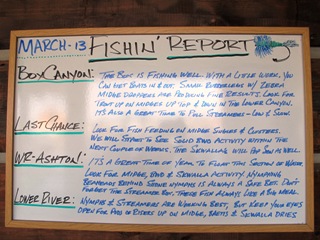 MARCH-13 FISHIN' REPORT
BOX CANYON: THE BOX IS FISHING WELL. WITH A LITTLE WORK, YOU
CAN GET BOATS IN & OUT. SMALL RUBBERLEGS W/ ZEBRA
MIDGE DROPPERS ARE PRODUCING FINE RESULTS. LOOK FOR
TROUT UP ON MIDGES UP TOP & DOWN IN THE LOWER CANYON.
IT'S ALSO A GREAT TIME TO PULL STREAMERS - LOW & SLOW.
LAST CHANCE: LOOK FOR FISH FEEDING ON MIDGE SINGLES & CLUSTERS.
WE WILL START TO SEE SOLID BWO ACTIVITY WITHIN THE
NEXT COUPLE OF WEEKS. THE SKWALLAS WILL POP SOON AS WELL.
WR-ASHTON: IT'S A GREAT TIME OF YEAR TO FLOAT THIS SECTION OF WATER.
LOOK FOR MIDGE, BWO & SKWALLA ACTIVITY. NYMPHING
BEADHEADS BEHIND STONE NYMPHS IS ALWAYS A SAFE BET. DON'T
FORGET THE STREAMER BOX, THESE FISH ALWAYS LIKE A BIG MEAL.
LOWER RIVER: NYMPHS & STREAMERS ARE WORKING BEST, BUT KEEP YOUR EYES
OPEN FOR POD OF RISERS UP ON MIDGE, BAETIS & SKWALLA DRIES